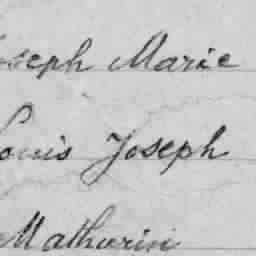 Joseph Marie
Louis Joseph
Mathurin